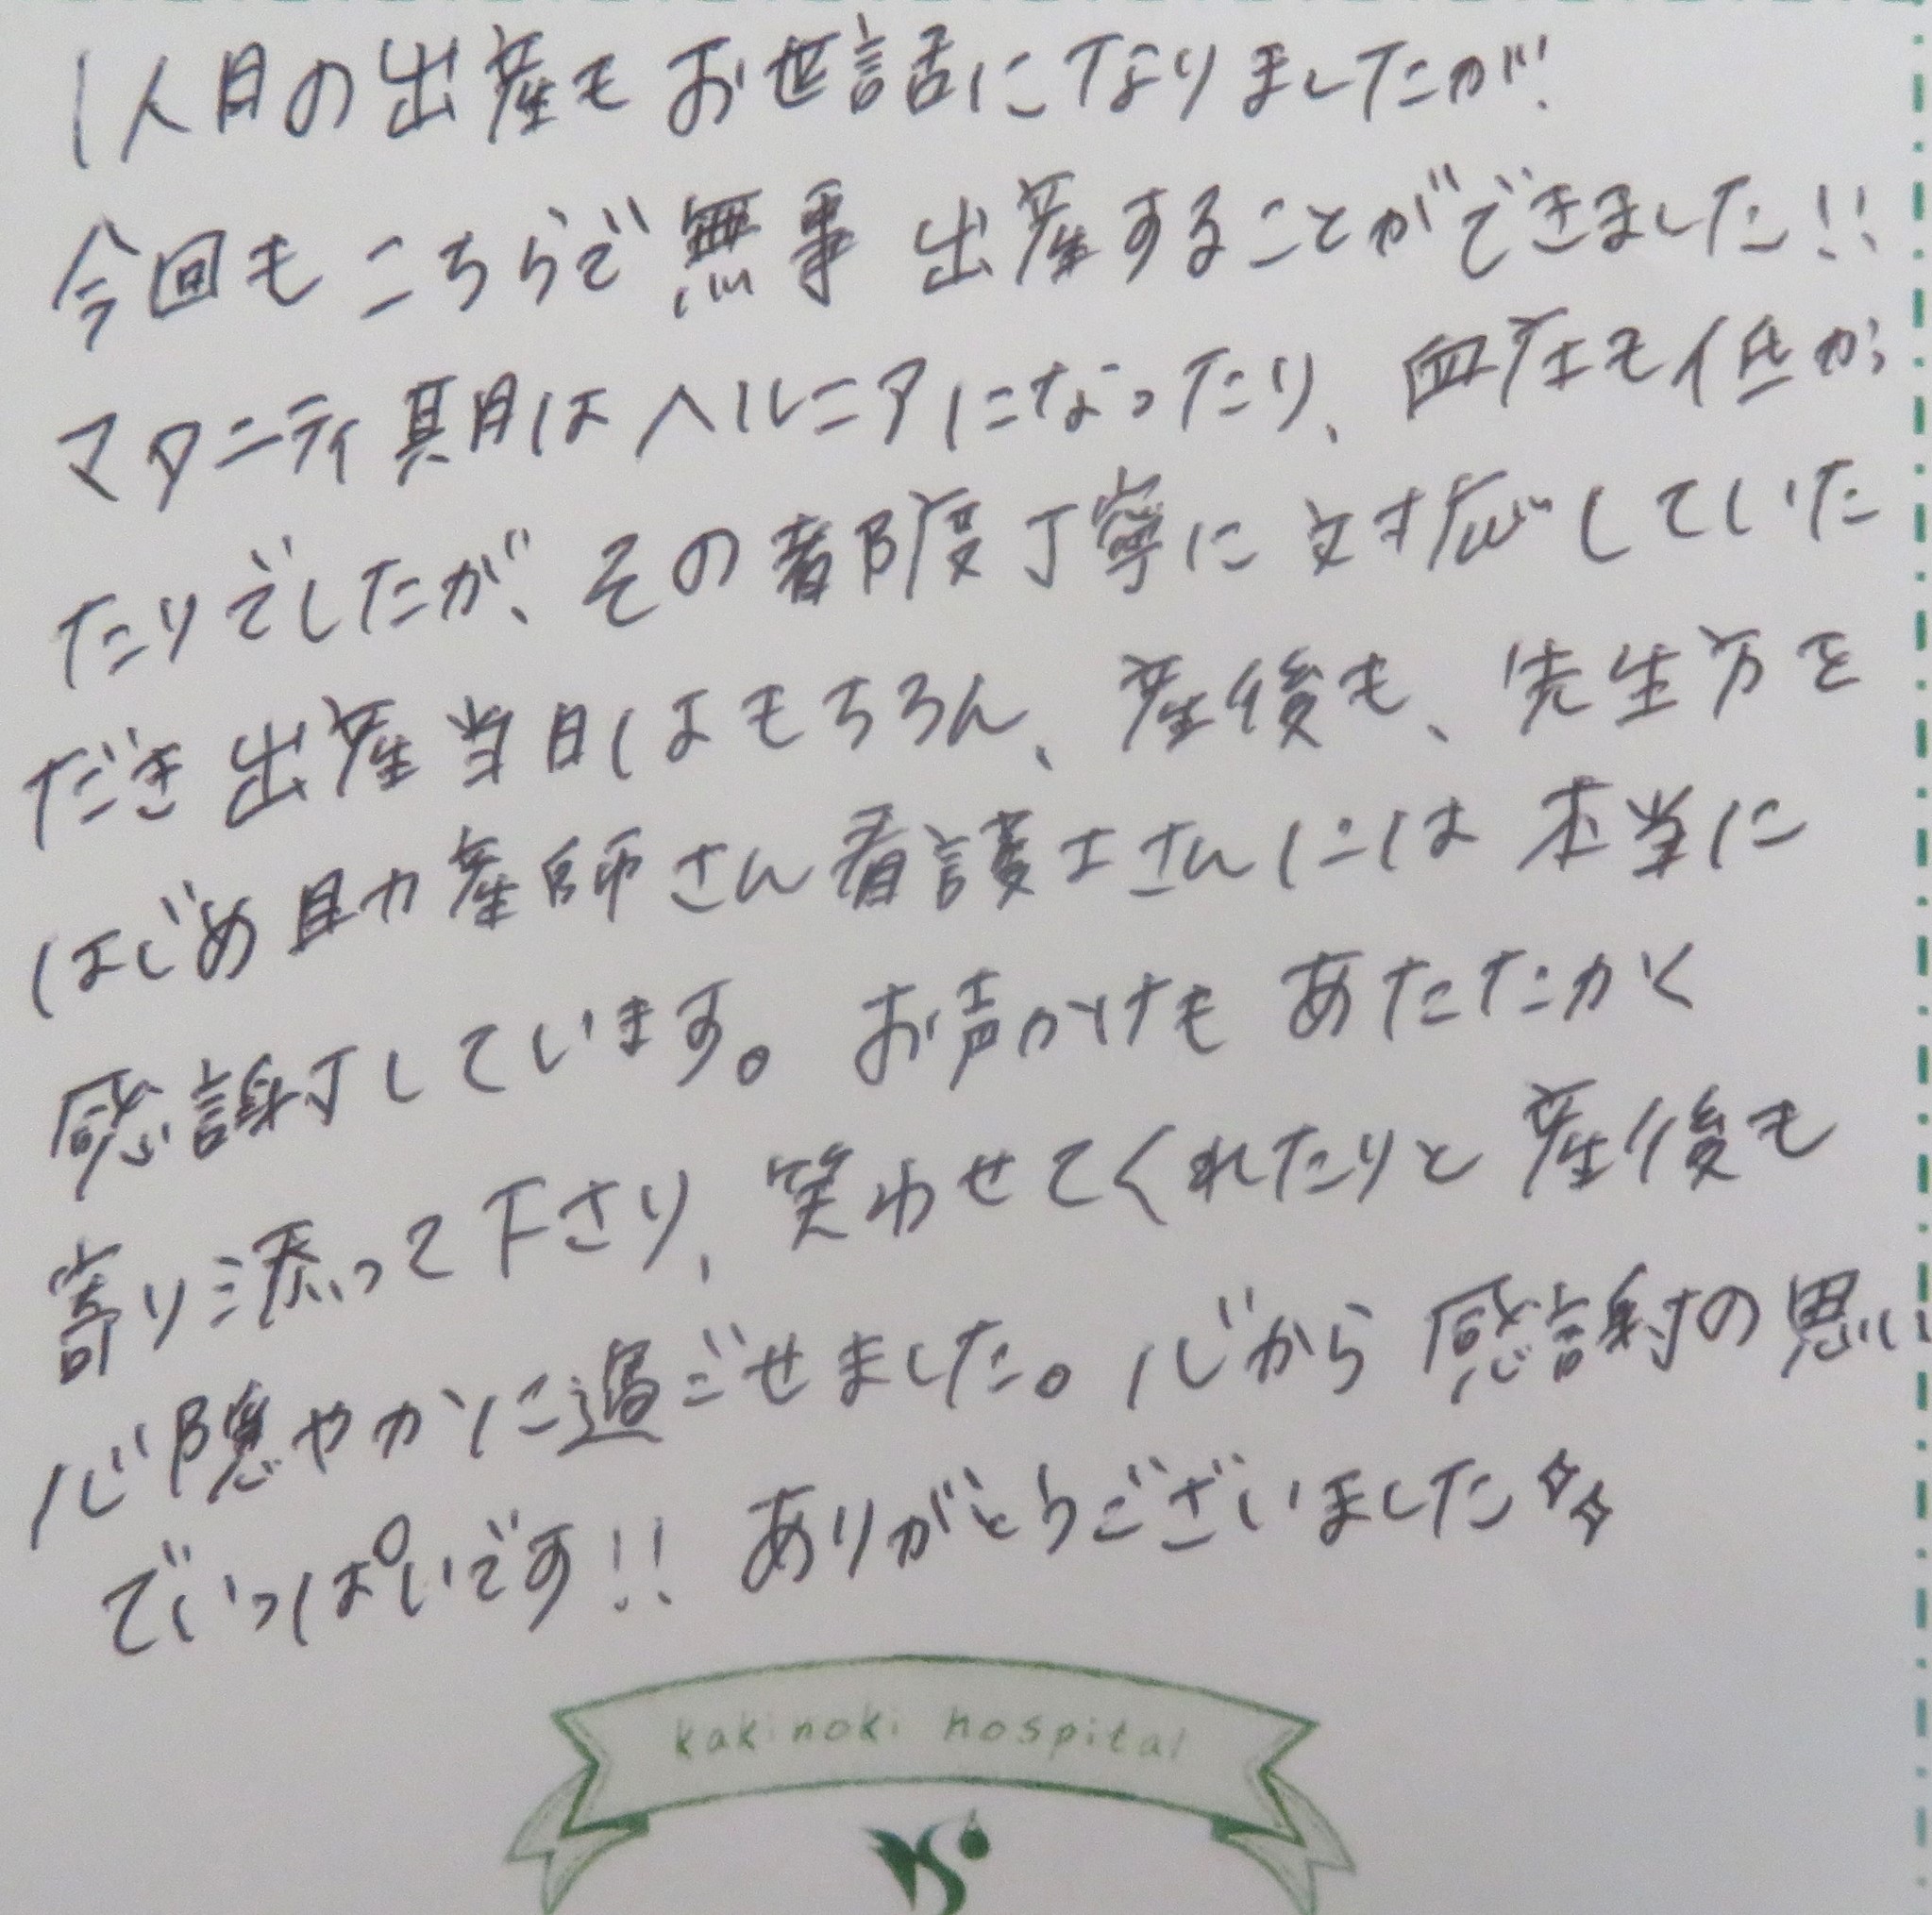 1人目の出産もお世話になりましたが、
今回もこちらで無事 出産することができました!!
マタニティ期はヘルニアになったり、血圧も低か
たりでしたが、その都度丁寧に対応していた
だき出産当日はもちろん、産後も、先生方を
はじめ助産師さん看護士さんには本当に
感謝しています。お声かけもあたたかく
寄り添って下さり、笑わせてくれたりと産後も
心隠やかに過ごせました。心から感謝の思い
でいっぱいです!! ありがとうございました☆☆
kakinoki hospital